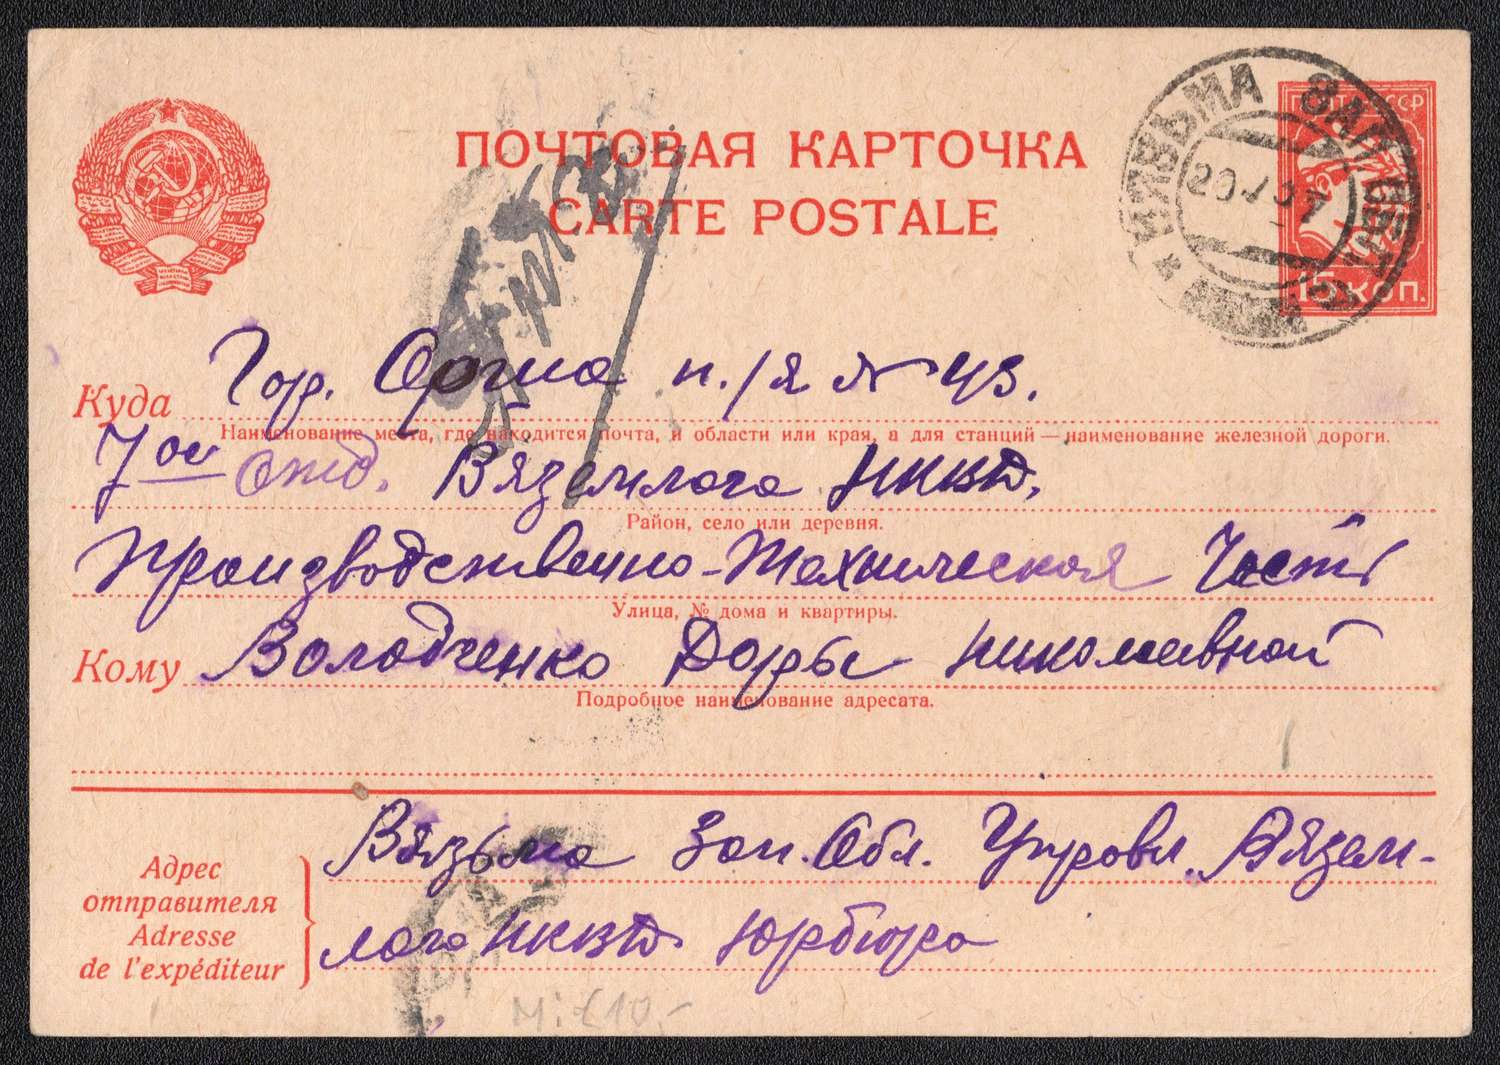 ПОЧТОВАЯ КАРТОЧКА
CARTE POSTALE
ВЯЗЬМА ЗАП. ОБЛ.
ПОЧТА СССР
15 КОП.
Куда Гор. Орша п./я № 43.
Наименование места, где находится почта, и области или края, а для станций — наименование железной дороги.
7ое отд. Вяземлага НКВД.
Район, село или деревня.
Производственно-Техническая Часть
Улица, № дома и квартиры.
Кому Володченко Доры Николаевной
Подробное наименование адресата.
Адрес отправителя
Adresse de l'expéditeur
Вязьма Зап. Обл. Управл. Вязем-
лага НКВД Юрбюро